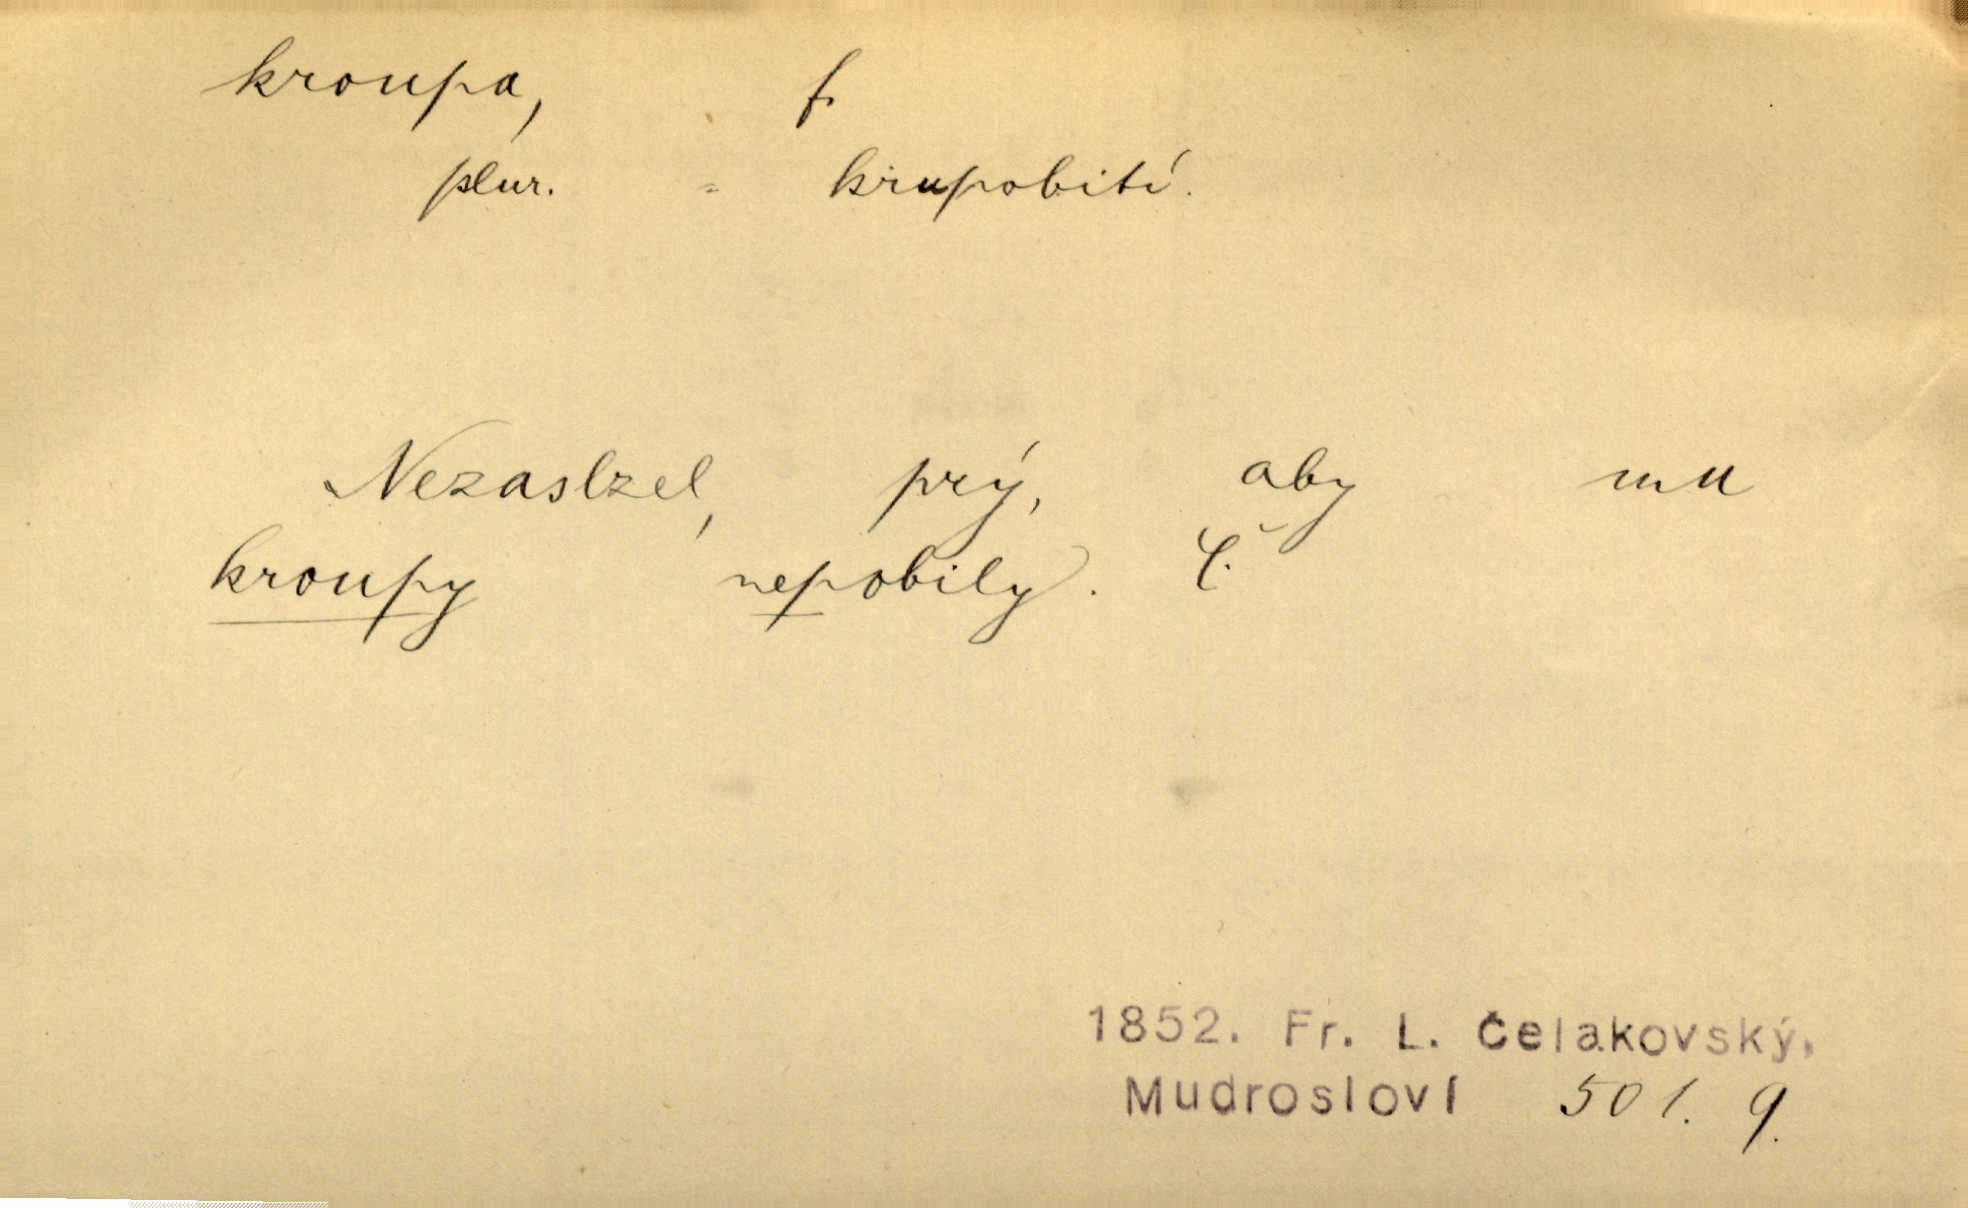 kroupa, f.
plur. = krupobití.
Nezaslzel, prý, aby mu
kroupy nepobily. Č.
1852. Fr. L. Čelakovský,
Mudrosloví 501. 9.